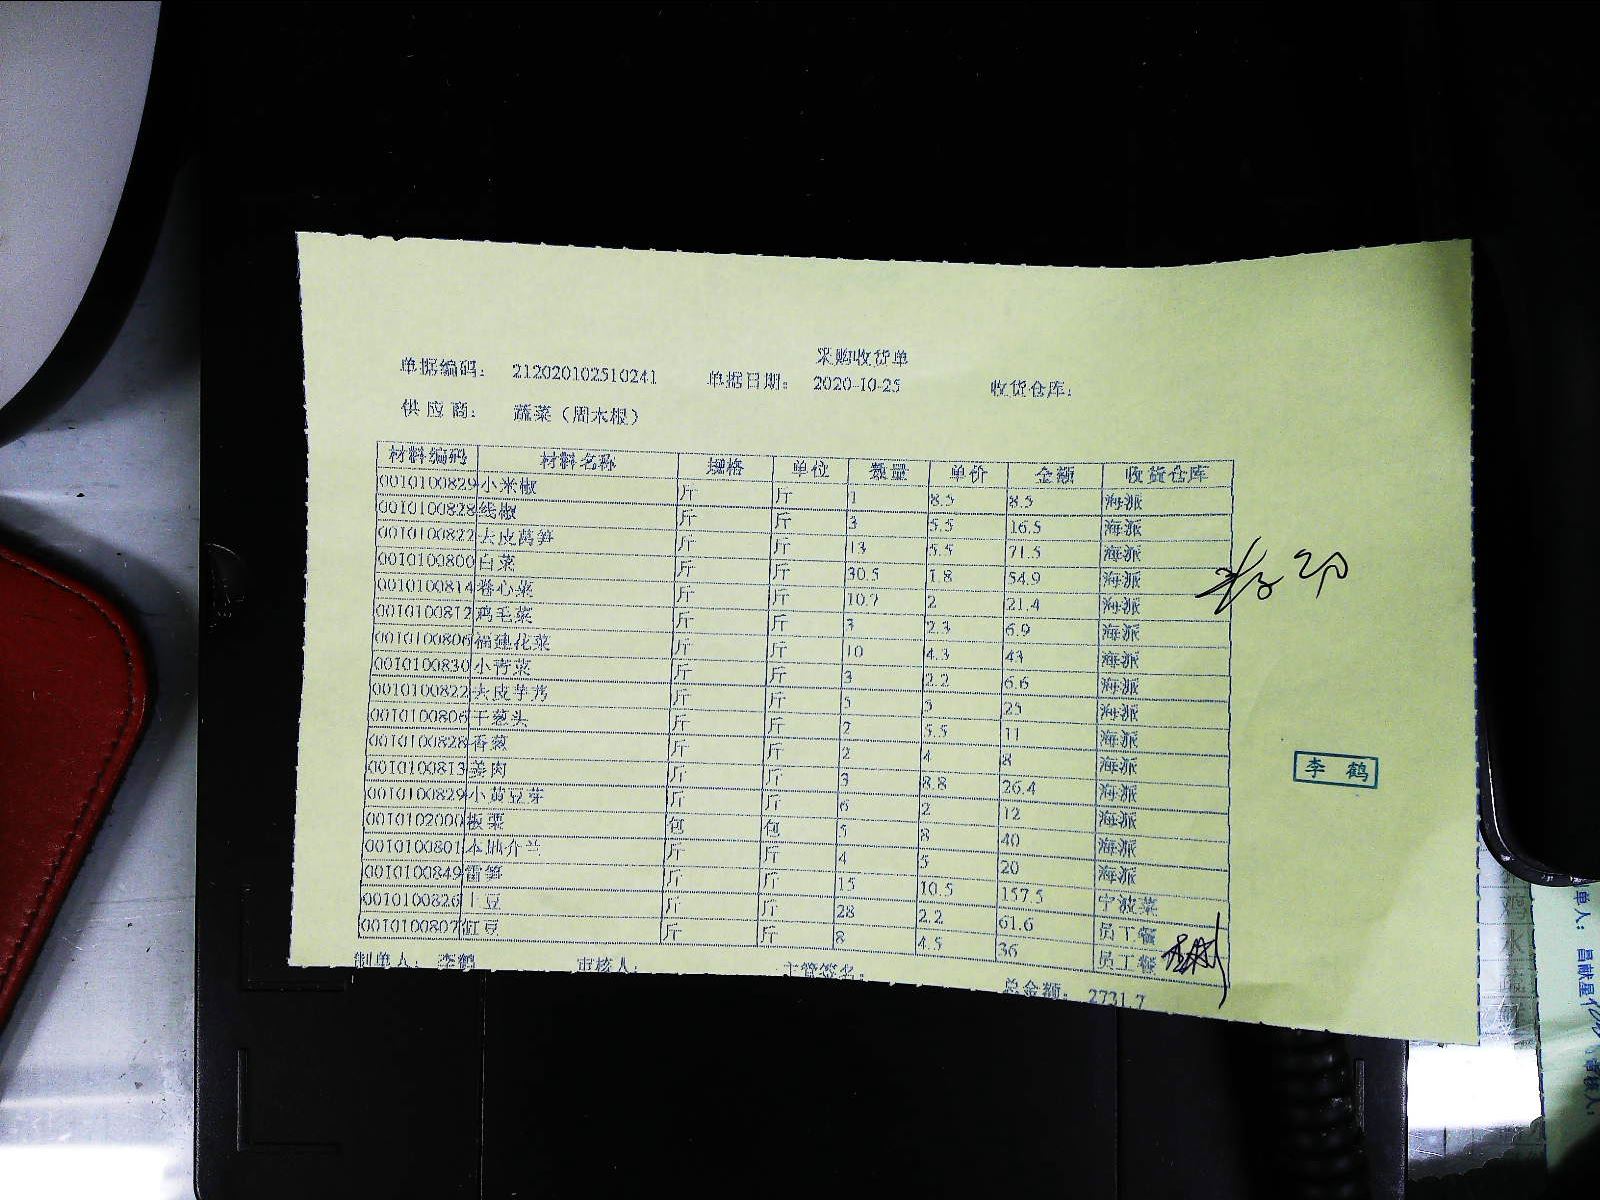 采购收货单
单据编码： 212020102510241 单据日期： 2020-10-25 收货仓库：
供应商： 蔬菜（周木根）
材料编码 材料名称 规格 单位 数量 单价 金额 收货仓库
0010100829 小米椒 斤 斤 1 8.5 8.5 海派
0010100828 线椒 斤 斤 3 5.5 16.5 海派
0010100822 去皮莴笋 斤 斤 13 5.5 71.5 海派
0010100800 白菜 斤 斤 30.5 1.8 54.9 海派
0010100814 卷心菜 斤 斤 10.7 2 21.4 海派
0010100812 鸡毛菜 斤 斤 3 2.3 6.9 海派
0010100806 福建花菜 斤 斤 10 4.3 43 海派
0010100830 小青菜 斤 斤 3 2.2 6.6 海派
0010100822 去皮芋艿 斤 斤 5 5 25 海派
0010100806 干葱头 斤 斤 2 5.5 11 海派
0010100828 香葱 斤 斤 2 4 8 海派
0010100813 姜肉 斤 斤 3 8.8 26.4 海派
0010100829 小黄豆芽 斤 斤 6 2 12 海派
0010102000 板栗 包 包 5 8 40 海派
0010100801 本地介兰 斤 斤 4 5 20 海派
0010100849 雷笋 斤 斤 15 10.5 157.5 宁波菜
0010100826 土豆 斤 斤 28 2.2 61.6 员工餐
0010100807 豇豆 斤 斤 8 4.5 36 员工餐
制单人： 李鹤 审核人： 主管签名： 总金额： 2731.7
李鹤
单人： 昌献星
审核人：